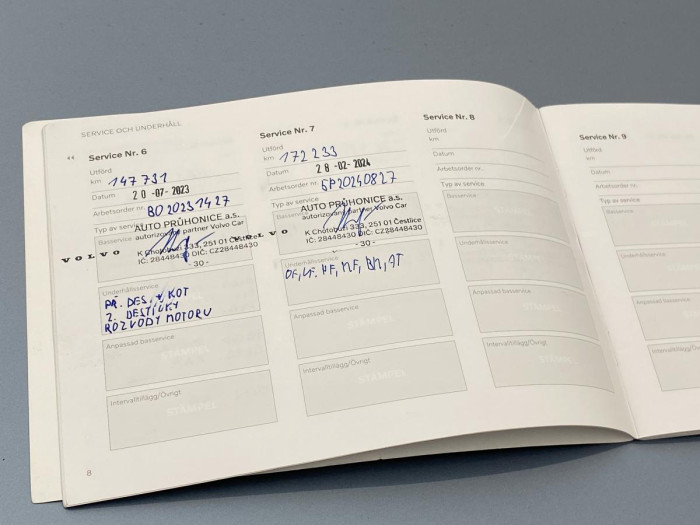 SERVICE OCH UNDERHÅLL
Service Nr. 6
Utförd
km 147 731
Datum 20-07-2023
Arbetsorder nr. BO20231427
Typ av service
Basservice
AUTO PRŮHONICE a.s.
autorizovaný partner Volvo Car
VOLVO
K Chotobuzi 333, 251 01 Čestlice
IČ: 28448430 DIČ: CZ28448430
- 30 -
Underhållsservice
PŘ. DES. + KOT
Z. DESTIČKY
ROZVODY MOTORU
Anpassad basservice
STÄMPEL
Intervalltillägg/Övrigt
STÄMPEL
8
Service Nr. 7
Utförd
km 172 233
Datum 28-02-2024
Arbetsorder nr.
Typ av service
Basservice
AUTO PRŮHONICE a.s.
autorizovaný partner Volvo Car
VOLVO
K Chotobuzi 333, 251 01 Čestlice
IČ: 28448430 DIČ: CZ28448430
- 30 -
Underhållsservice
Anpassad basservice
STÄMPEL
Intervalltillägg/Övrigt
STÄMPEL
Service Nr. 8
Utförd
km
Datum
Arbetsorder nr.
Typ av service
Basservice
Underhållsservice
Anpassad basservice
Intervalltillägg/Övrigt
Service Nr. 9
Utförd
km
Datum
Arbetsorder nr.
Typ av service
Basservice
Underhållsservice
Anpassad basservice